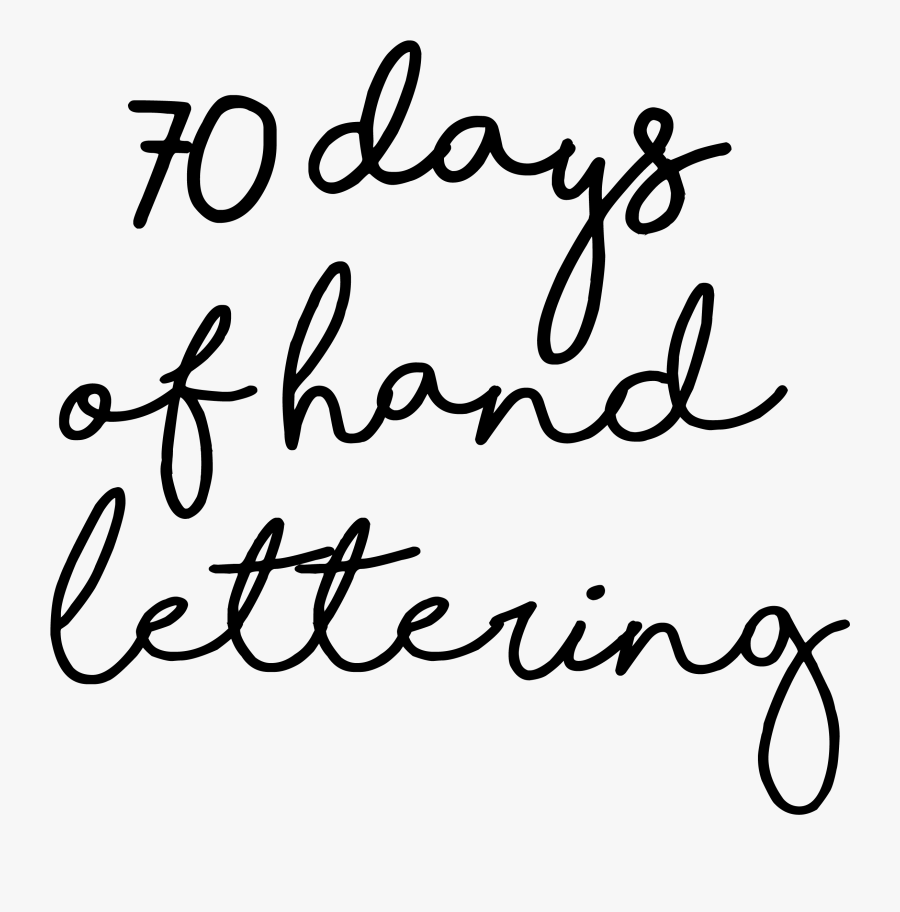 70 days
of hand
lettering